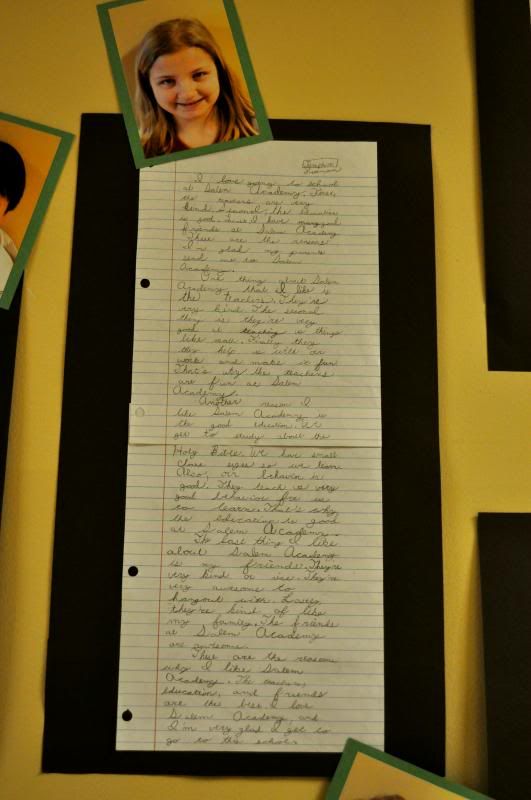 I love going to school
at Salem Academy. First,
the teachers are very
kind. Second, the education
is good. Last, I have many good
friends at Salem Academy.
These are the reasons
I'm glad my parents
send me to Salem
Academy.
One thing about Salem
Academy that I like is
the teachers. They're
very kind. The second
thing is they're very
good at teaching us things
like math. Finally they
they help us with our
work and make it fun
That's why the teachers
are fun at Salem
Academy.
Another reason I
like Salem Academy is
the good education. We
get to study about the
Holy Bible. We have small
class sizes so we learn
Also, our behavior is
good. They teach us very
good behavior for us
to learn. That's why
the education is good
at Salem Academy.
The last thing I like
about Salem Academy
is my friends. They're
very kind to
They're
very awesome to
hangout with. Lastly,
they're kind of like
my family. The friends
at Salem Academy
are awesome.
These are the reasons
why I like Salem
Academy. The teachers,
education, and friends
are the best. I love
Salem Academy and
I'm very glad I get to
go to this school.